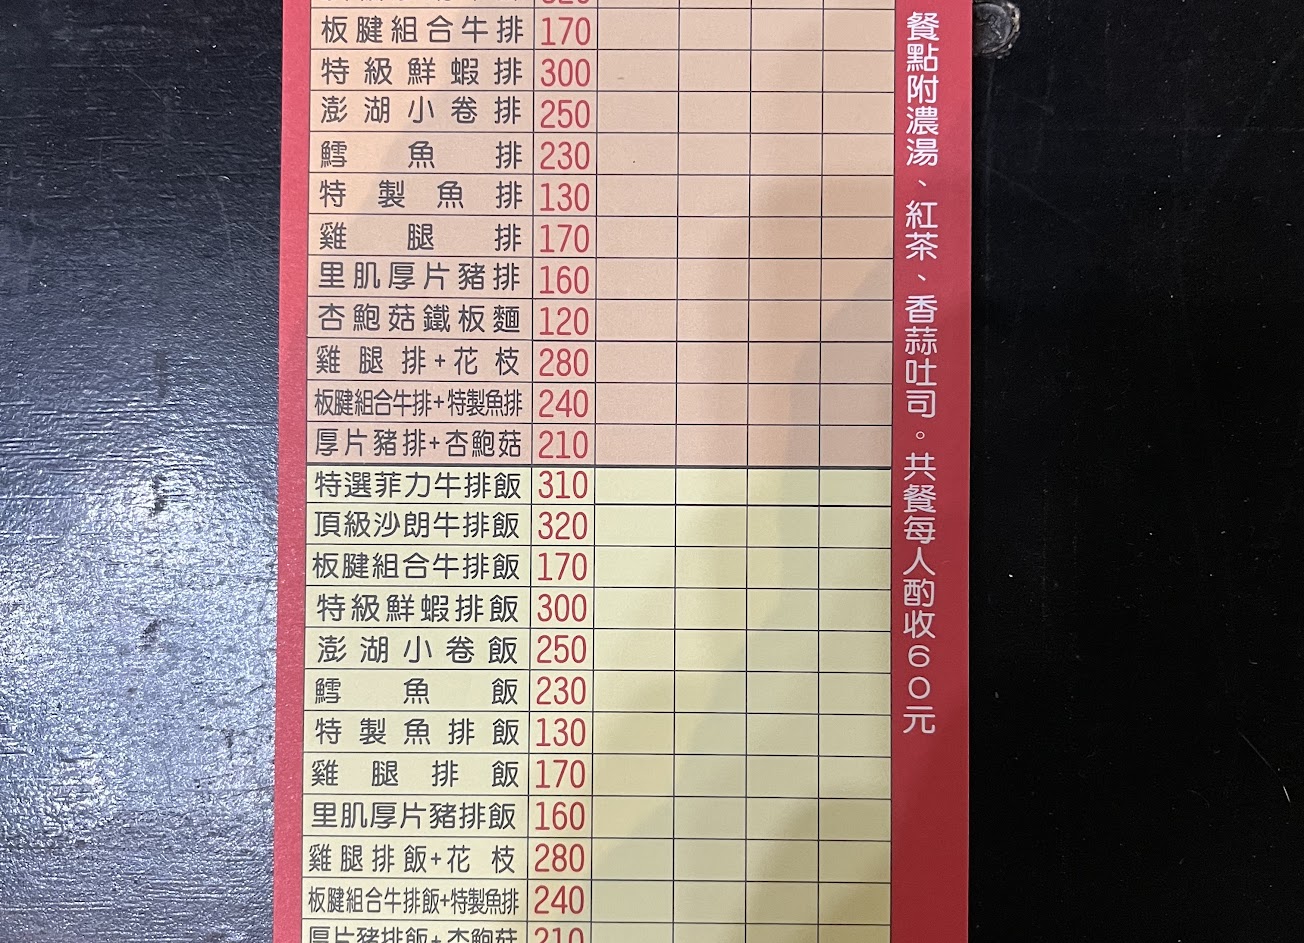 板腱組合牛排 170
特級鮮蝦排 300
澎湖小卷排 250
鱈魚排 230
特製魚排 130
雞腿排 170
里肌厚片豬排 160
杏鮑菇鐵板麵 120
雞腿排+花枝 280
板腱組合牛排+特製魚排 240
厚片豬排+杏鮑菇 210
特選菲力牛排飯 310
頂級沙朗牛排飯 320
板腱組合牛排飯 170
特級鮮蝦排飯 300
澎湖小卷飯 250
鱈魚飯 230
特製魚排飯 130
雞腿排飯 170
里肌厚片豬排飯 160
雞腿排飯+花枝 280
板腱組合牛排飯+特製魚排 240
厚片豬排飯+杏鮑菇 210
餐點附濃湯、紅茶、香蒜吐司。共餐每人酌收60元